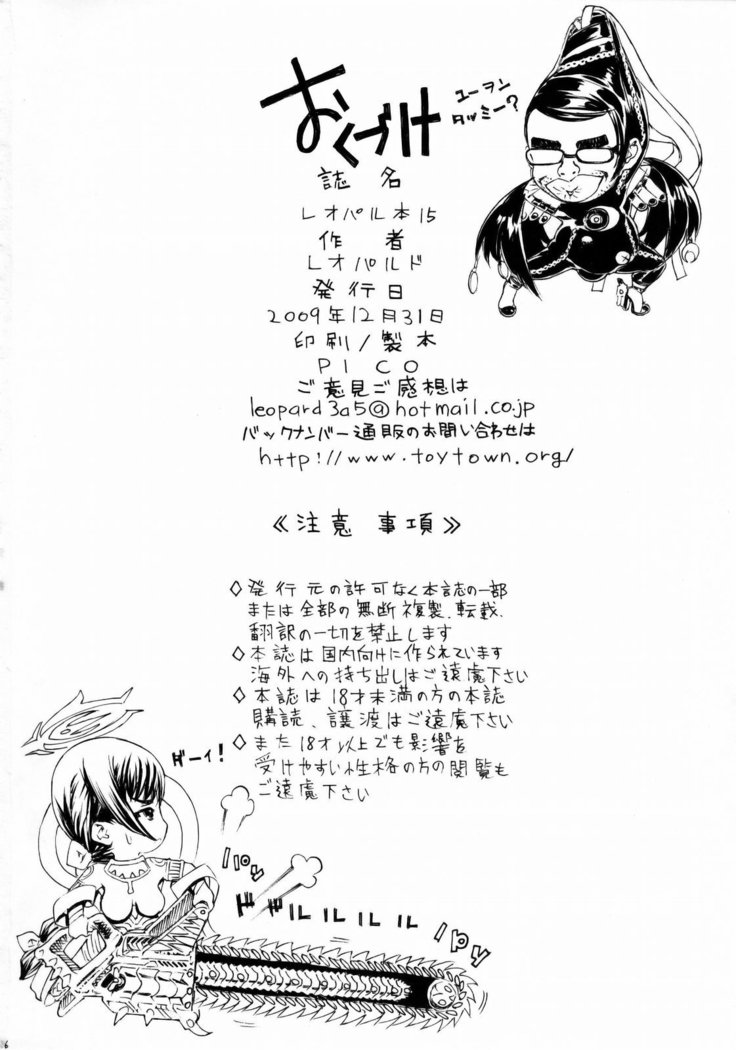 おくづけ
ユーヲン
タッミー?
誌名
レオパル本15
作者
レオパルド
発行日
2009年12月31日
印刷/製本
PICO
ご意見ご感想は
leopard3a5@hotmail.co.jp
バックナンバー通販のお問い合わせは
http://www.toytown.org/
《注意事項》
◇発行元の許可なく本誌の一部
または全部の無断複製、転載、
翻訳の一切を禁止します
◇本誌は国内向けに作られています
海外への持ち出しはご遠慮下さい
◇本誌は18才未満の方の本誌
購読、譲渡はご遠慮下さい
◇また18才以上でも影響を
受けやすい性格の方の閲覧も
ご遠慮下さい
ゲーイ!
パン
ドドルルルルル
6